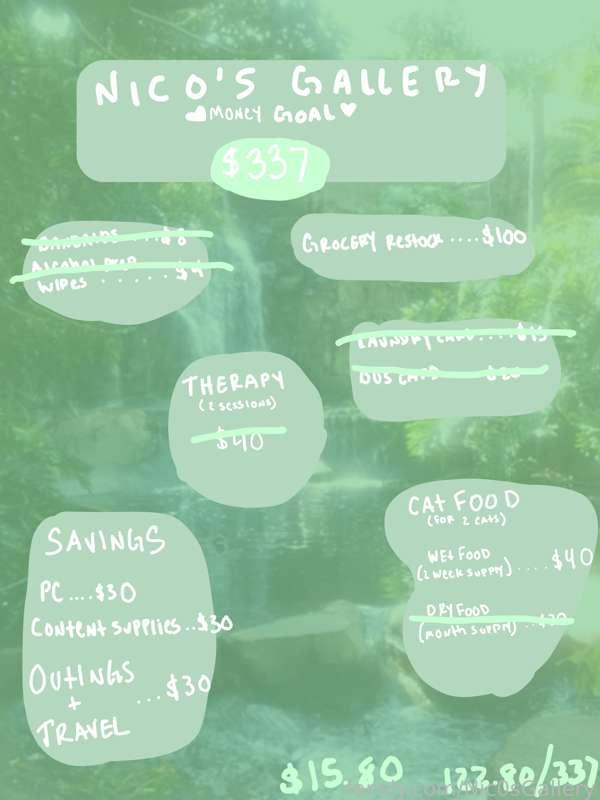 NICO'S GALLERY
MONEY GOAL
$337
BANDAIDS ....$8
ALCOHOL PREP
WIPES ......$4
GROCERY RESTOCK ....$100
LAUNDRY CARD ....$15
BUS CARD $20
THERAPY
(2 SESSIONS)
$40
CAT FOOD
(FOR 2 CATS)
WET FOOD
(2 WEEK SUPPLY) ....$40
DRY FOOD
(MONTH SUPPLY) ..
SAVINGS
PC ....$30
CONTENT SUPPLIES ..$30
OUTINGS
+ ...$30
TRAVEL
$15.80 122.80/337